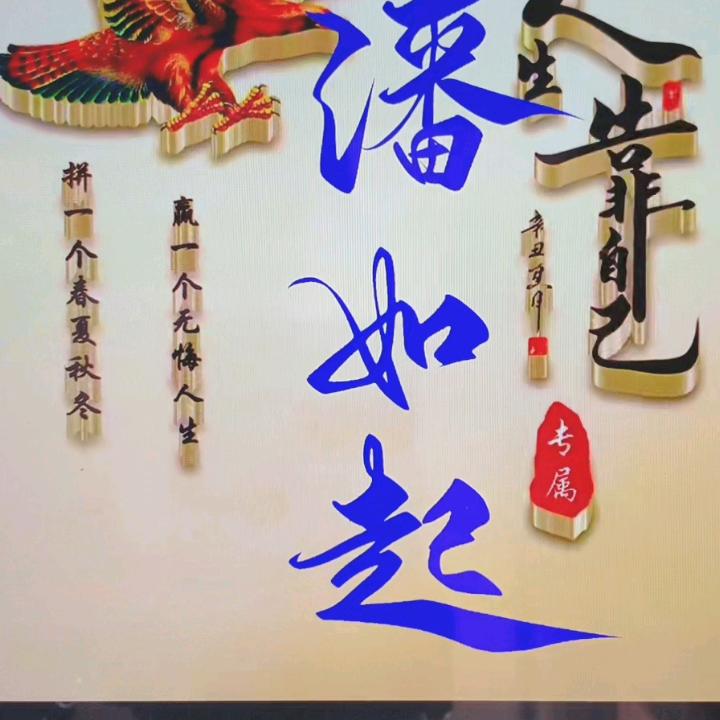 人生
靠自己
辛丑夏月
专属
潘如起
赢一个无悔人生
拼一个春夏秋冬